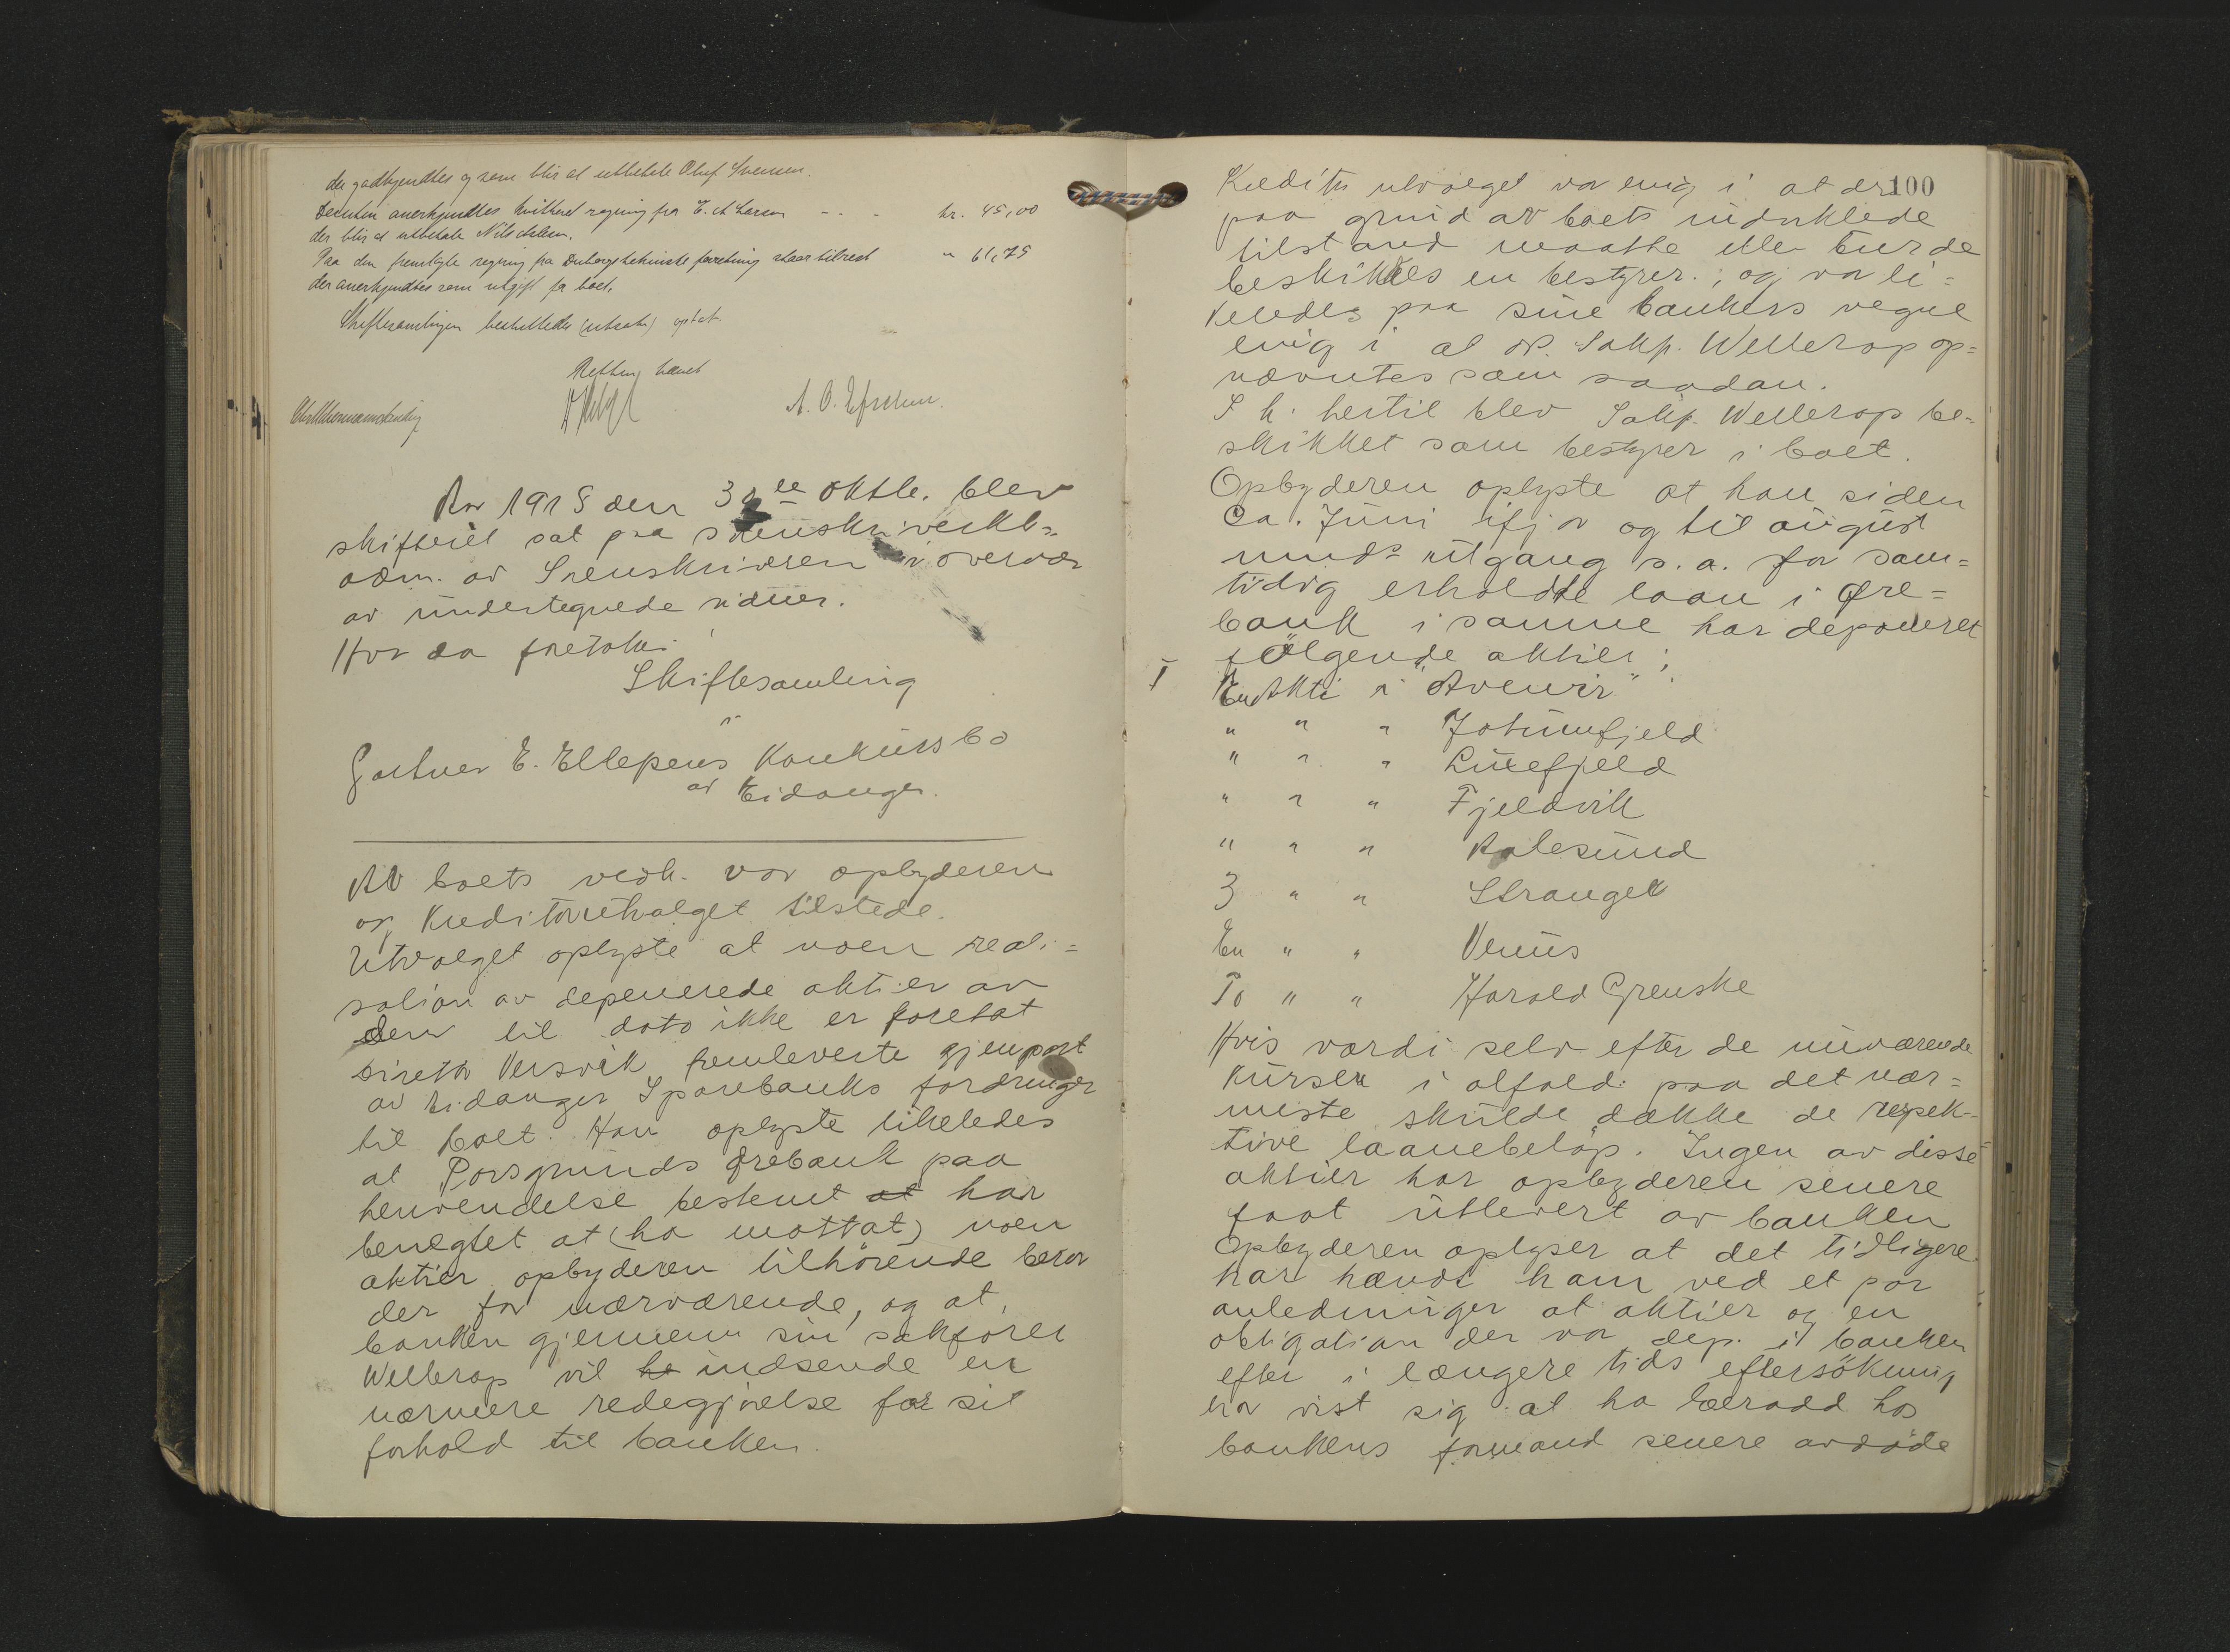 der godkjendtes og som blir at utbetale Oluf Svensen.
Desuten anerkjendtes kvittert regning fra E. A. Larsen - - - kr. 45,00
der blir at utbetale Nils
Paa den fremlagte regning fra forretning staar tilrest " 61,75
der anerkjendtes som utgift for boet.
Skiftesamlingen besluttedes (utsat) optat.
Retten hævet
Aar 1918 den 31 te oktbr. blev
skifteret sat paa sorenskriverkt=
adm. av Sorenskriveren i overvær
av undertegnede vidner.
Hvor da foretokes:
Skiftesamling
i
Gartner E. Ellefsens Konkursbo
av Eidanger.
Av boets vedk. var opbyderen
og Kreditorutvalget tilstede.
Utvalget oplyste at noen reali=
sation av deponerede aktier av
dem til dato ikke er foretat
Direktør Versvik fremleverte gjenpart
av Eidanger Sparebanks fordringer
til boet. Han oplyste likeledes
at Porsgrunds Ørebank paa
henvendelse bestemt at har
benegtet at (ha mottat) noen
aktier opbyderen tilhørende beror
der for nærværende, og at
banken gjennem sin sakfører
Wellerop vil be indsende en
nærmere redegjørelse for sit
forhold til banken.
100
Kreditorutvalget var enig i at der
paa grund av boets indviklede
tilstand maatte eller burde
beskikkes en bestyrer; og var li=
keledes paa sine bankers vegne
enig i at o.r. Sakf. Wellerop op=
nævntes som saadan.
I h. hertil blev Sakf. Wellerop be=
skikket som bestyrer i boet.
Opbyderen oplyste at han siden
Ca. Juni ifjor og til august
mnds utgang s.a. for sam=
tidig erholdte laan i Øre=
bank i samme har deponeret
følgende aktier:
I En Akti i "Avenir"
" " " Jotunfjeld
" " " Luefjeld
" " " Fjeldvik
" " " Aalesund
3 " " Stranger
En " " Venus
To " " Harald Grenske
Hvis værdi selv efter de nuværende
Kurser i alfald paa det nær=
meste skulde dække de respek=
tive laanebeløp. Ingen av disse
aktier har opbyderen senere
faat utlevert av banken
Opbyderen oplyser at det tidligere
har hændt ham ved et par
anledninger at aktier og en
obligation der var dep. i banken
efter i længere tids eftersøkning
har vist sig at ha beroadd hos
bankens formand senere avdøde